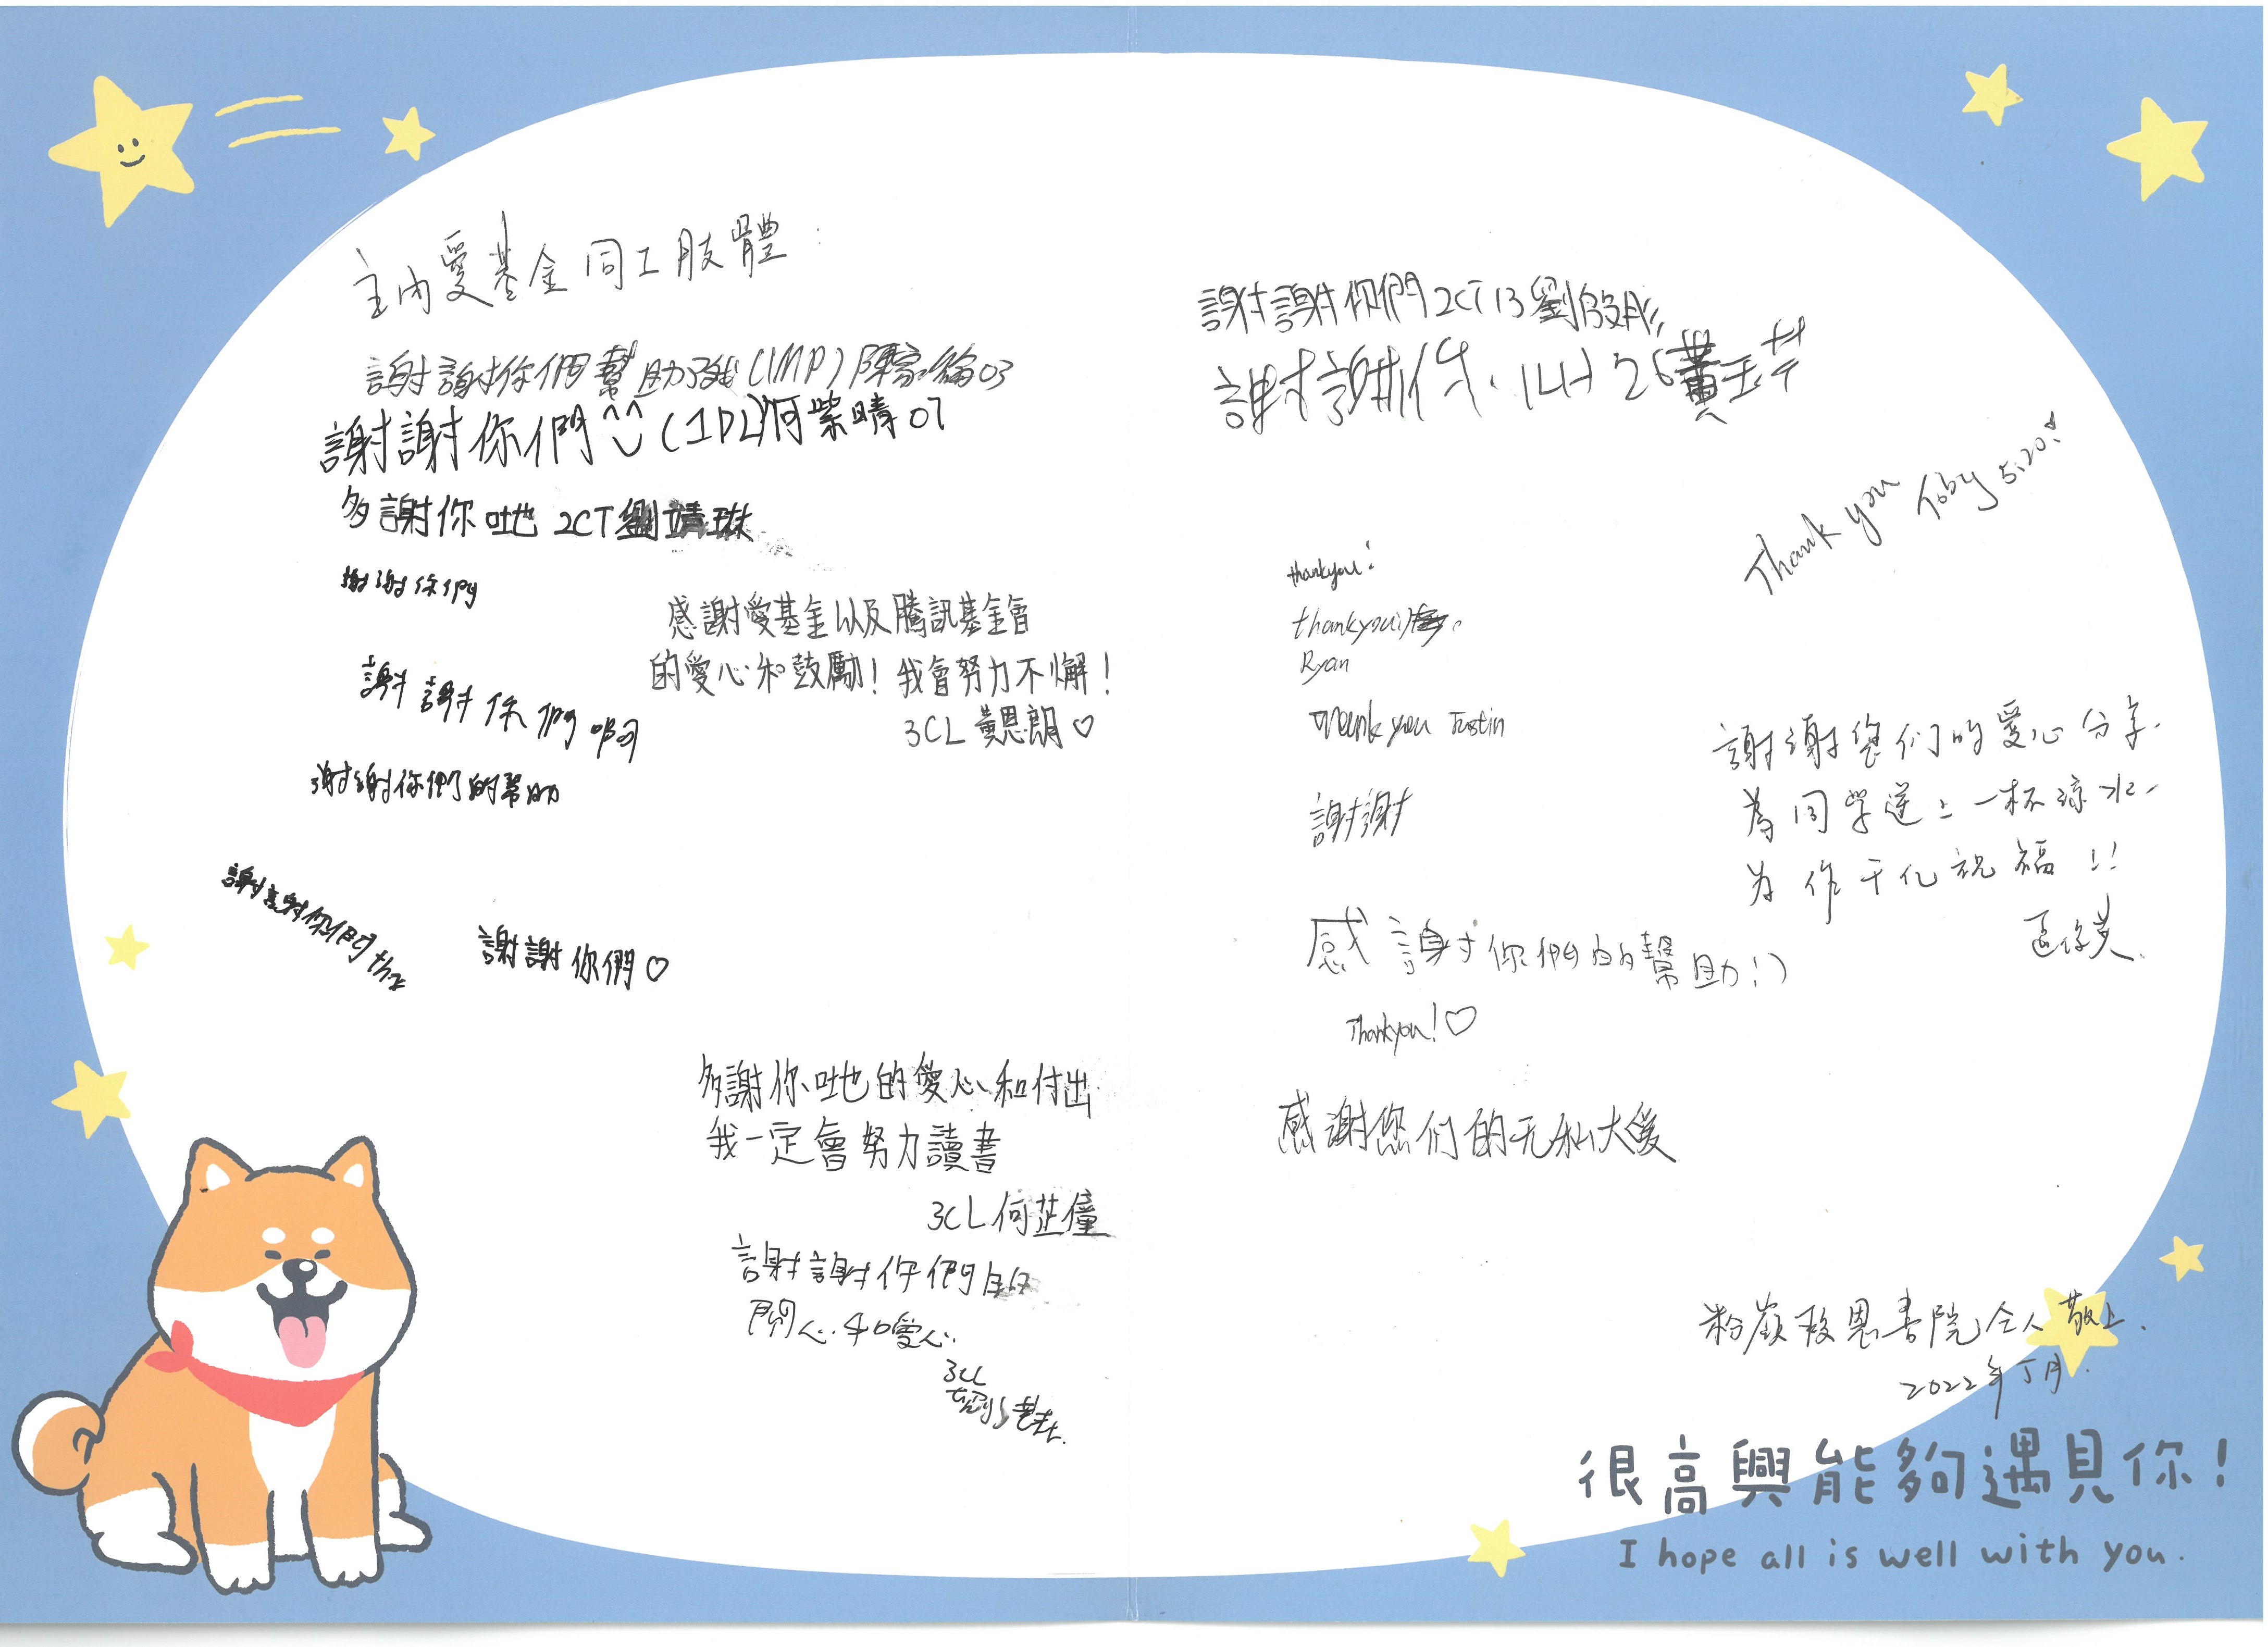 主內愛基金同工肢體：
謝謝你們幫助了我(1MP)陳 03
謝謝你們^^(1PL)何紫晴07
多謝你哋 2CT 劉靖琳
謝謝你們
謝謝你們啊
謝謝你們的幫助
謝謝你們
謝謝你們♡
感謝愛基金以及騰訊基金會
的愛心和鼓勵！我會努力不懈！
3CL 黃恩朗♡
多謝你哋的愛心和付出
我一定會努力讀書
3CL 何芷僮
謝謝你們
關心和愛心
3CL
謝謝你們 2CT 13 劉
謝謝 1LH 26 黃
Thank you Toby 5:20!
thankyou!
thankyou
Ryan
Thank you Justin
謝謝
謝謝您们的愛心分享.
為同学送上一杯涼水.
为作千化祝福！！
感謝你們的幫助！：）
Thankyou!♡
感謝您们的无私大愛
粉嶺救恩書院仝人敬上.
2022年 月.
很高興能夠遇見你！
I hope all is well with you.